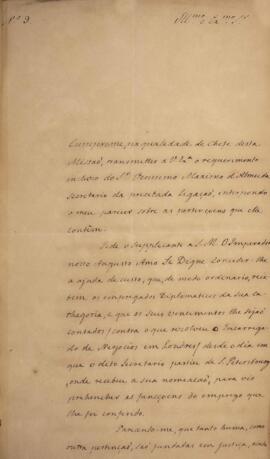 Nº 9.
Illmo e Exmo Sr.
Cumpre-me, na qualidade de Chefe desta
Missaõ, transmittir a V. Exa o requerimento
incluso do Sr. Maximo d'Almeida
Secretario da precitada Legaçaõ, interpondo
o meu parecer sobre as pertençoens que elle
contêm.
Pede o Supplicante a S. M. O Imperador
nosso Augusto Amo Se Digne Conceder-lhe
a ajuda de custo, que, de modo ordinario, rece-
bem os empregados Diplomaticos da sua Ca-
thegoria, e que os Seus vencimentos lhe sejaõ
contados (contra o que resolveu o Encarrega-
do de Negocios em Londres) desde o dia em
que o dito Secretario partio de S. Petersbourg,
onde recebeu a sua nomeacaõ, para vir
prehencher as funcçoens do emprego que
lhe foi conferido.
Parecendo-me, que tanto huma, como
outra pertençaõ, saõ fundadas em justiça,